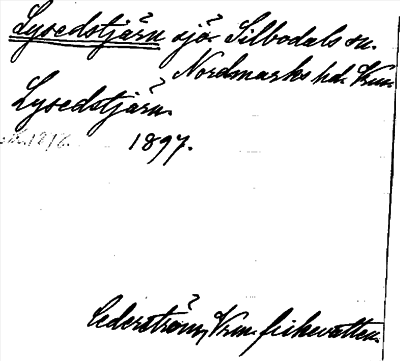 Lysedstjärn sjö Silbodals sn.
Nordmarks hd. Vrm.
Lysedstjärn.
1897.
Cederström, Vrm. fiskevatten.